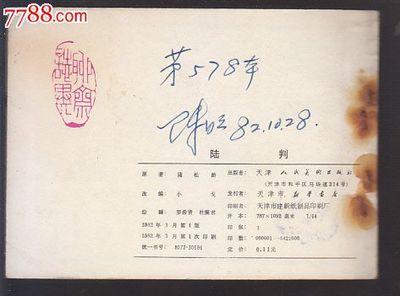 7788.com
第578本
82.10.28.
陆 判
原著 蒲松龄
改编 小戈
绘画 罗希贤 杜颖君
1982年3月第1版
1982年3月第1次印刷
统一书号 8073·30591
出版者: 天津人民美术出版社
(天津市和平区马场道214号)
发行者: 天津市新华书店
印刷者: 天津市建新纸制品印刷厂
开本: 787×1092毫米 1/64
印张: 1
印数: 000001—542:000
定价: 0.11元